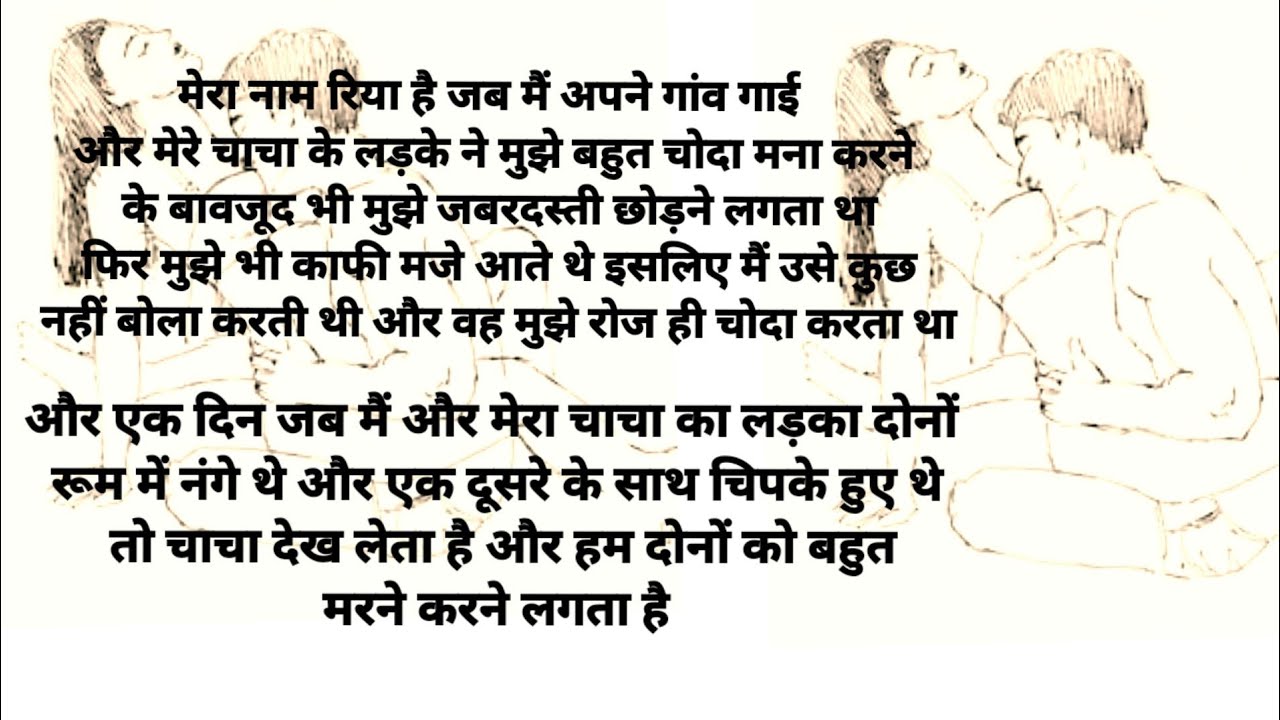 मेरा नाम रिया है जब मैं अपने गांव गाई
और मेरे चाचा के लड़के ने मुझे बहुत चोदा मना करने
के बावजूद भी मुझे जबरदस्ती छोड़ने लगता था
फिर मुझे भी काफी मजे आते थे इसलिए मैं उसे कुछ
नहीं बोला करती थी और वह मुझे रोज ही चोदा करता था
और एक दिन जब मैं और मेरा चाचा का लड़का दोनों
रूम में नंगे थे और एक दूसरे के साथ चिपके हुए थे
तो चाचा देख लेता है और हम दोनों को बहुत
मरने करने लगता है